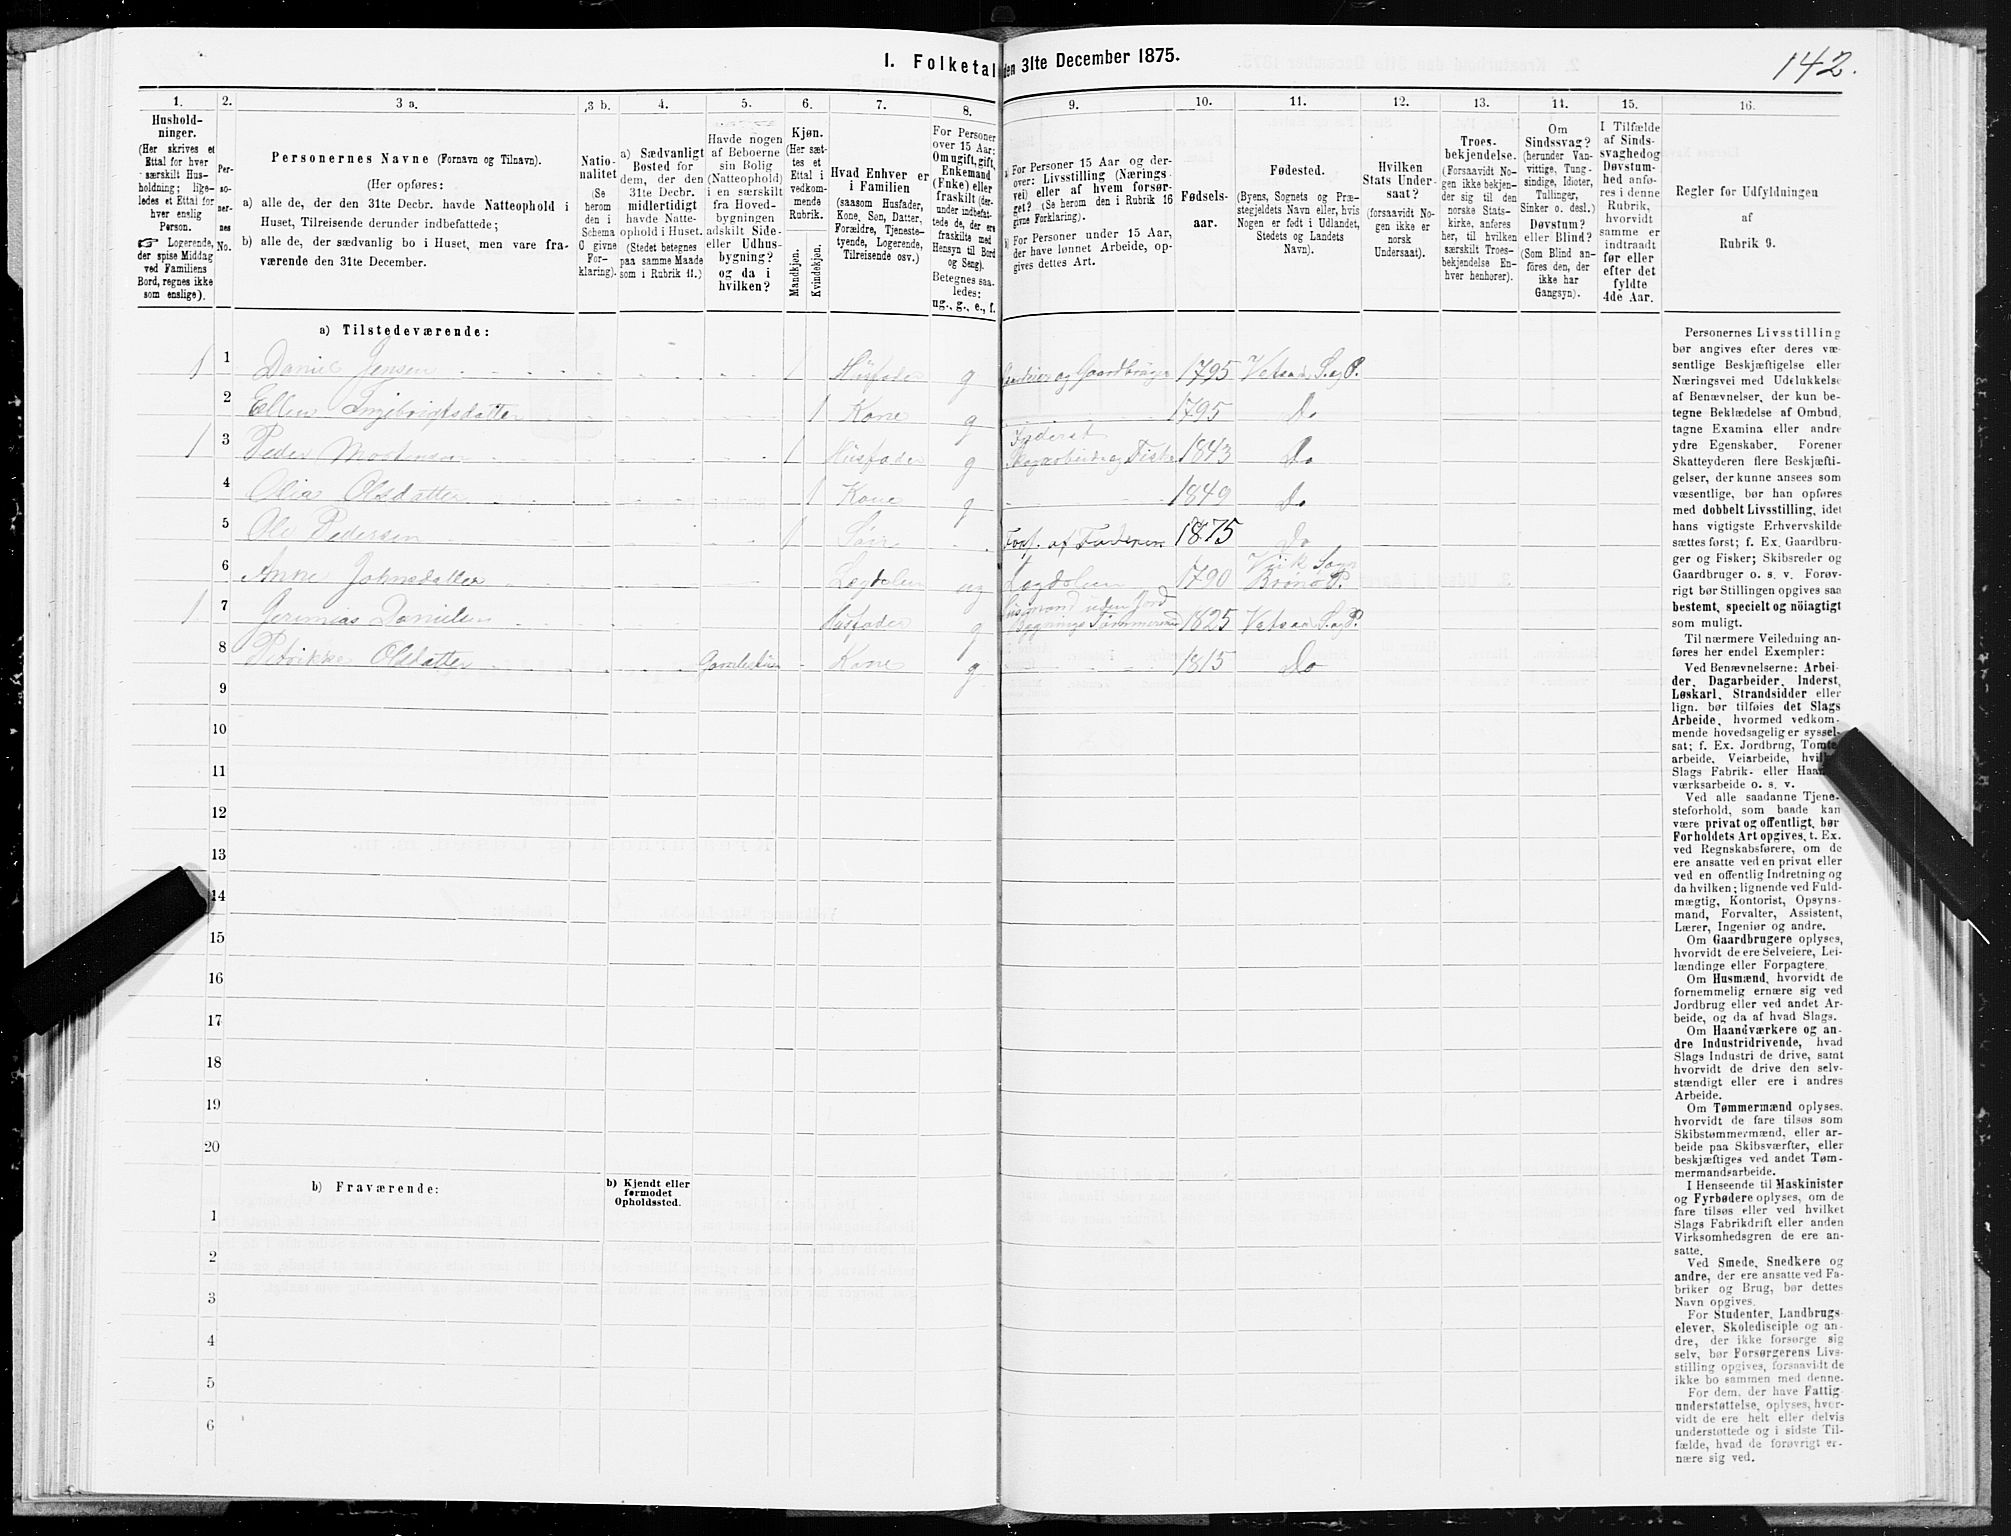 142.
I. Folketal den 31te December 1875.
1. 2. 3 a. 3 b. 4. 5. 6. 7. 8. 9. 10. 11. 12. 13. 14. 15. 16.
Husholdninger.
(Her skrives et
Ettal for hver
særskilt Husholdning; ligeledes
et Ettal for
hver enslig
Person.
☞ Logerende,
der spise Middag
ved Familiens
Bord, regnes ikke
som enslige).
Personernes
No.
Personernes Navne (Fornavn og Tilnavn).
(Her opføres:
a) alle de, der den 31te Decbr. havde Natteophold i
Huset, Tilreisende derunder indbefattede;
b) alle de, der sædvanlig bo i Huset, men vare fraværende
den 31te December.
Nationalitet
(Se
herom
den i
Schema
C givne
Forklaring).
a) Sædvanligt
Bosted for
dem, der den
31te Decbr.
midlertidigt
havde Natteophold
i Huset.
(Stedet betegnes
paa samme Maade
som i Rubrik 11.)
Havde nogen
af Beboerne
sin Bolig
(Natteophold)
i en særskilt
fra Hovedbygningen
adskilt Side-
eller Udhusbygning?
og da i
hvilken?
Kjøn.
(Her sættes
et
Ettal i
vedkommende
Rubrik.
Mandkjøn.
Kvindekjøn.
Hvad Enhver er
i Familien
(saasom Husfader,
Kone, Søn, Datter,
Forældre, Tjenestetyende,
Logerende,
Tilreisende osv.)
For Personer
over 15 Aar:
Om ugift, gift,
Enkemand
(Enke) eller
fraskilt (derunder
indbefattede
de, der ere
fraskilte med
Hensyn til Bord
og Seng).
Betegnes saaledes:
ug., g., e., f.
a) For Personer 15 Aar og derover:
Livsstilling (Næringsvei)
eller af hvem forsørget?
(Se herom den i Rubrik 16
givne Forklaring).
b) For Personer under 15 Aar,
der have lønnet Arbeide, opgives
dettes Art.
Fødselsaar.
Fødested.
(Byens, Sognets og Præstegjeldets
Navn eller, hvis
Nogen er født i Udlandet,
Stedets og Landets
Navn).
Hvilken
Stats Undersaat?
(forsaavidt Nogen
ikke er
norsk
Undersaat).
Troesbekjendelse.
(Forsaavidt Nogen
ikke bekjender
sig til den
norske Statskirke,
anføres
her, til hvilken
særskilt Troesbekjendelse
Enhver
henhører).
Om
Sindssvag?
(herunder Vanvittige,
Tungsindige,
Idioter,
Tullinger,
Sinker o. desl.)
Døvstum?
eller Blind?
(Som Blind anføres
den, der
ikke har
Gangsyn).
I Tilfælde
af Sindssvaghed
og
Døvstumhed
anføres
i denne
Rubrik,
hvorvidt
samme er
indtraadt
før eller
efter det
fyldte
4de Aar.
Regler for Udfyldningen
af
Rubrik 9.
a) Tilstedeværende:
1 1 Daniel Jensen 1 Husfader g Gaardbruger 1795 S. og P.
2 Ellen Ingebrigtsdatter 1 Kone g 1795 Do
1 3 Peder Mortensen 1 Husfader g Inderst
Skogarbeide og Fisker 1843 Do
4 Olia Olsdatter 1 Kone g 1849 Do
5 Ole Pedersen 1 Søn Fors. af Faderen 1875 Do
6 Anne Johnsdatter Lægdslem ug Lægdslem 1790 Vik Sogn
Brønø P.
1 7 Jeremias Danielsen Husfader g Husmand uden Jord
Bygnings Tømmermand 1825 S. og P.
8 Petrikke Olsdatter Kone g 1815 Do
9
10
11
12
13
14
15
16
17
18
19
20
b) Fraværende:
b) Kjendt eller
formodet
Opholdssted.
1
2
3
4
5
6
Personernes Livsstilling
bør angives efter deres væsentlige
Beskjæftigelse eller
Næringsvei med Udelukkelse
af Benævnelser, der kun betegne
Beklædelse af Ombud,
tagne Examina eller andre
ydre Egenskaber. Forener
Skatteyderen flere Beskjæftigelser,
der kunne ansees som
væsentlige, bør han opføres
med dobbelt Livsstilling, idet
hans vigtigste Erhvervskilde
sættes først; f. Ex. Gaardbruger
og Fisker; Skibsreder og
Gaardbruger o. s. v. Forøvrigt
bør Stillingen opgives saa
bestemt, specielt og nöiagtigt
som muligt.
Til nærmere Veiledning anføres
her endel Exempler:
Ved Benævnelserne: Arbeider,
Dagarbeider, Inderst,
Løskarl, Strandsidder eller
lign. bør tilføies det Slags
Arbeide, hvormed vedkommende
hovedsagelig er sysselsat;
f. Ex. Jordbrug, Tomtearbeide,
Veiarbeide, hvilket
Slags Fabrik- eller Haandværksarbeide
o. s. v.
Ved alle saadanne Tjenesteforhold,
som baade kan
være privat og offentligt, bør
Forholdets Art opgives, t. Ex.
ved Regnskabsførere, om de
ere ansatte ved en privat eller
ved en offentlig Indretning og
da hvilken; lignende ved Fuldmægtig,
Kontorist, Opsynsmand,
Forvalter, Assistent,
Lærer, Ingeniør og andre.
Om Gaardbrugere oplyses,
hvorvidt de ere Selveiere, Leilændinge
eller Forpagtere.
Om Husmænd, hvorvidt de
fornemmelig ernære sig ved
Jordbrug eller ved andet Arbeide,
og da af hvad Slags.
Om Haandværkere og andre
Industridrivende, hvad
Slags Industri de drive, samt
hvorvidt de drive den selvstændigt
eller ere i andres
Arbeide.
Om Tømmermænd oplyses,
hvorvidt de fare tilsøs som
Skibstømmermænd, eller arbeide
paa Skibsværfter, eller
beskjæftiges ved andet Tømmermandsarbeide.
I Henseende til Maskinister
og Fyrbødere oplyses, om de
fare tilsøs eller ved hvilket
Slags Fabrikdrift eller anden
Virksomhedsgren de ere ansatte.
Ved Smede, Snedkere og
andre, der ere ansatte ved Fabriker
og Brug, bør dettes
Navn opgives.
For Studenter, Landbrugselever,
Skoledisciple og andre,
der ikke forsørge sig
selv, bør Forsørgerens Livsstilling
opgives, forsaavidt de
ikke bo sammen med denne.
For dem, der have Fattigunderstøttelse,
oplyses, hvorvidt
de ere helt eller delvis
understøttede og i sidste Tilfælde,
hvad de forøvrigt ernære
sig ved.